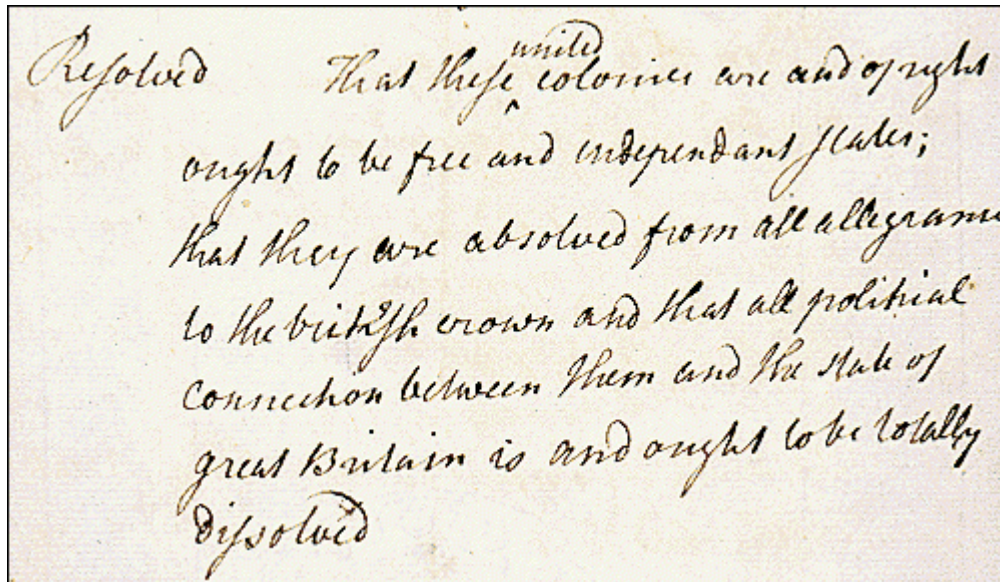 Resolved That these ^united colonies are and of right
ought to be free and independant states;
that they are absolved from all allegiance
to the british crown and that all political
connection between them and the state of
great Britain is and ought to be totally
dissolved